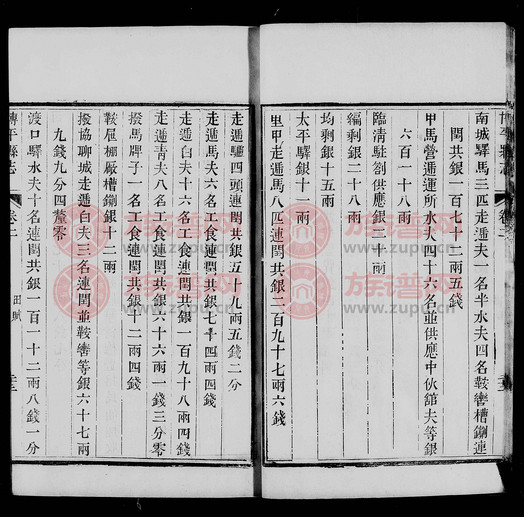 南城驛馬三匹走遞夫一名半水夫四名鞍轡槽鍘連
閏共銀一百七十二兩五錢
甲馬營遞運所水夫四十六名並供應中伙舘夫等銀
六百一十八兩
臨清駐劄供應銀三十兩
編剩銀二十八兩
均剩銀十五兩
太平驛銀十一兩
里甲走遞馬八匹連閏共銀二百九十七兩六錢
走遞驢四頭連閏共銀五十九兩五錢二分
走遞馬夫六名工食連閏共銀七十四兩四錢
走遞白夫十六名工食連閏共銀一百九十八兩四錢
走遞青夫八名工食連閏共銀六十六兩一錢三分零
撥馬牌子一名工食連閏共銀十二兩四錢
鞍屉棚廠槽鍘銀十二兩
撥協聊城走遞白夫三名連閏並鞍轡等銀六十七兩
九錢九分四釐零
渡口驛水夫十名連閏共銀一百一十二兩八錢一分
博平縣志
卷二
田賦
族谱网
www.zupu.cn